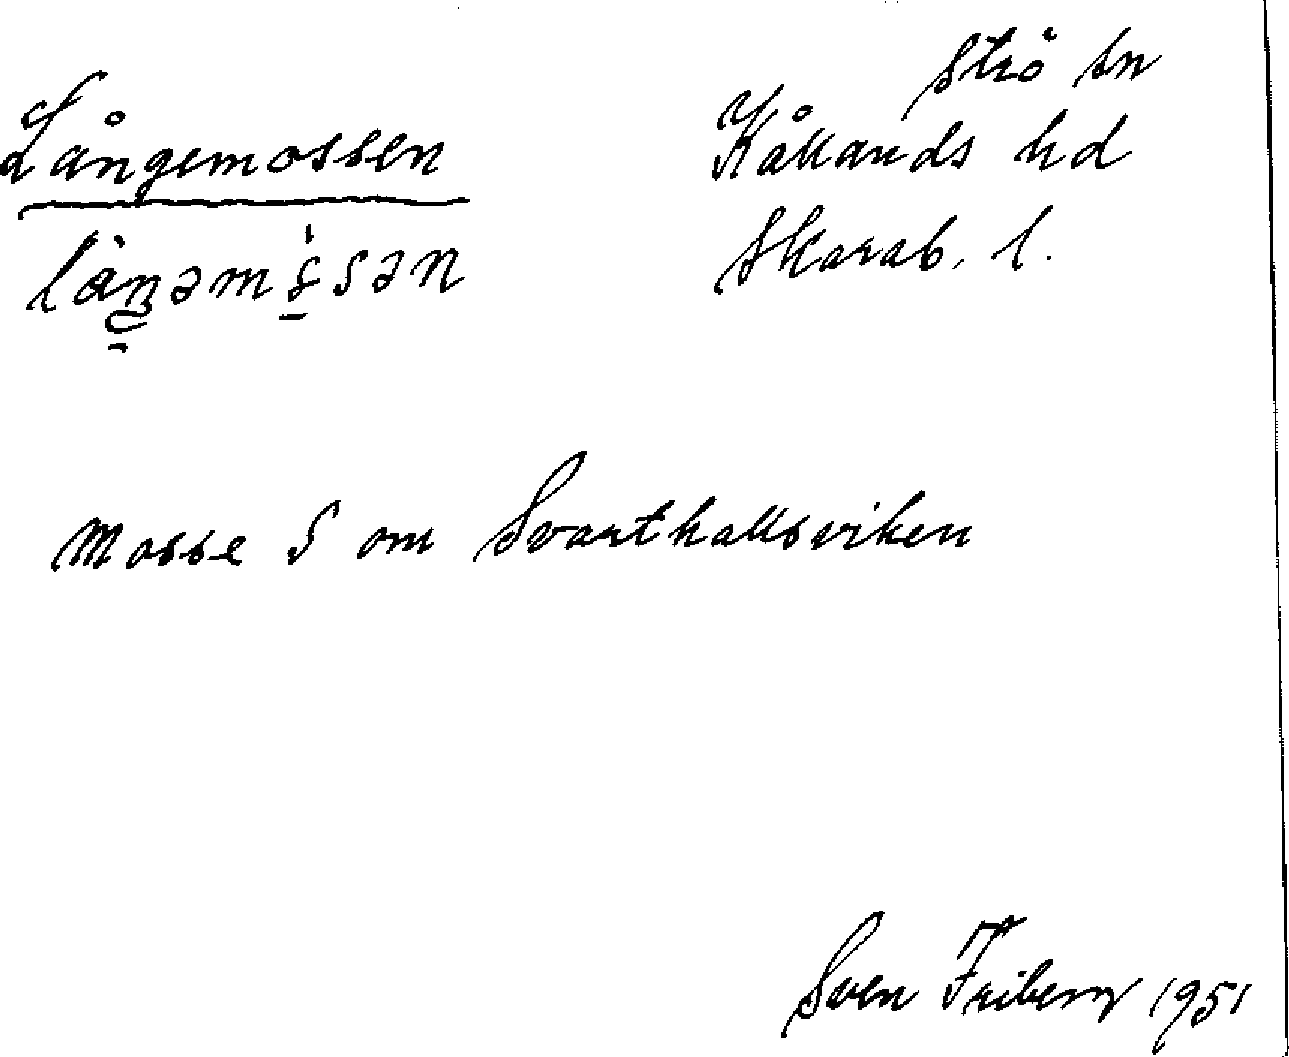 Strö sn
Långemossen
Kållands hd
Skarab. l.
Mosse S om Svarthallsviken
Sven Friberg 1951